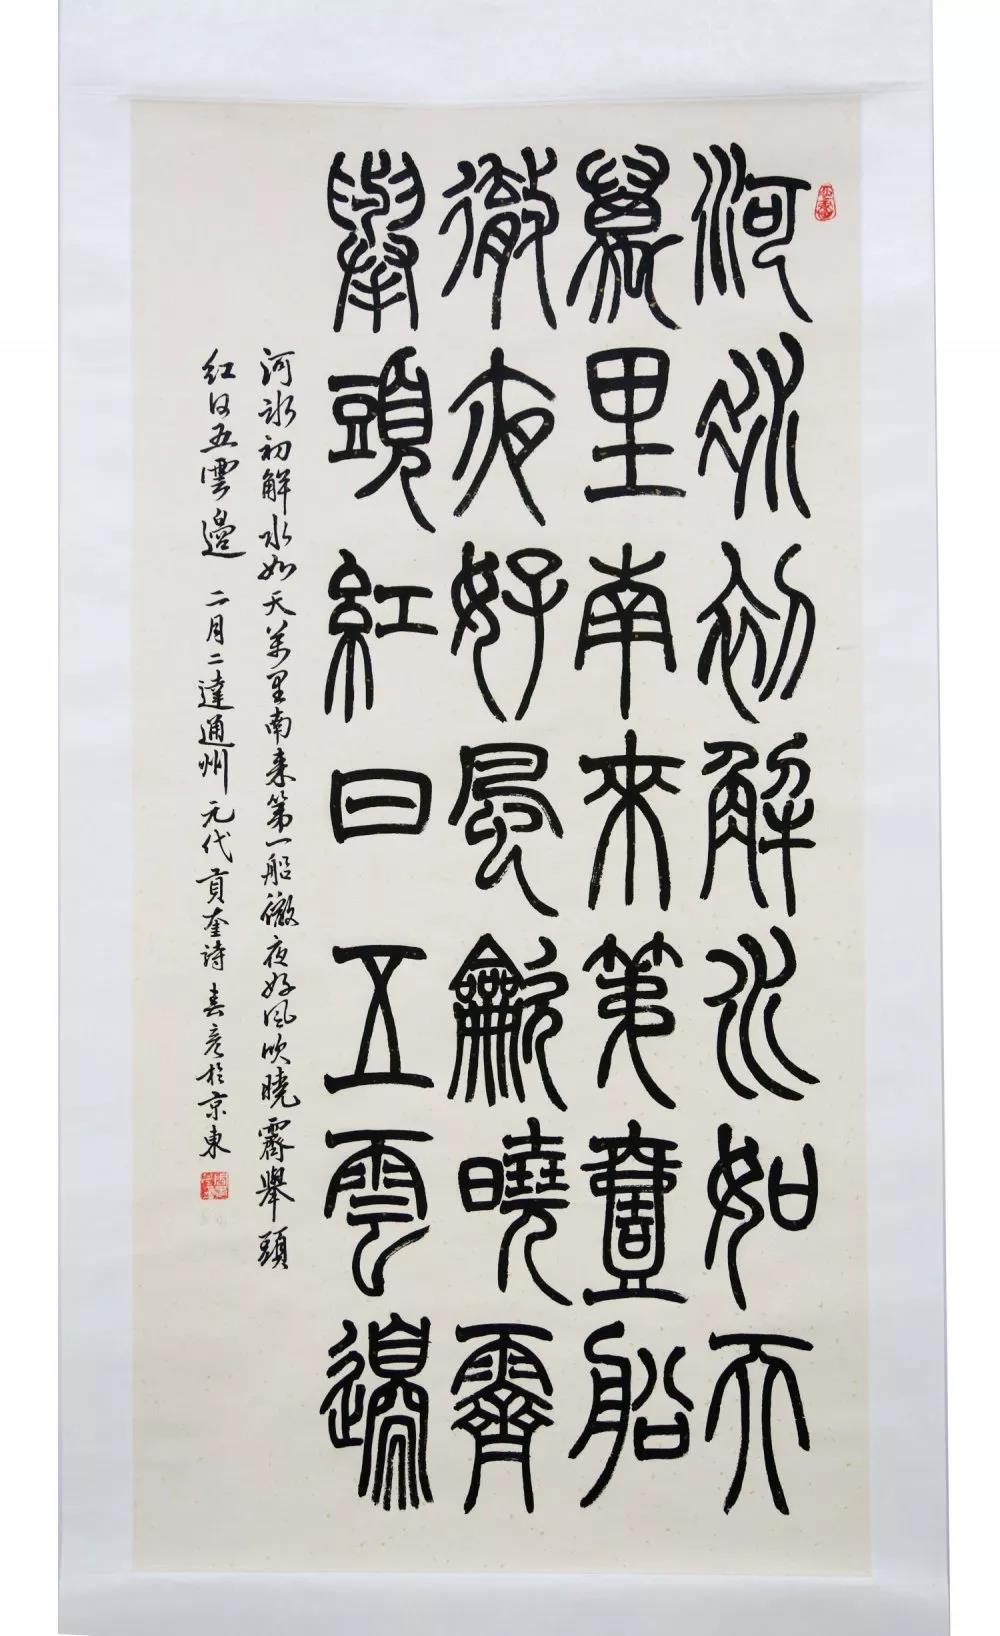 河冰初解水如天
萬里南來第壹船
徹夜好風龡曉霽
舉頭紅日五雲邊
河冰初解水如天萬里南来第一船徹夜好风吹曉霽舉頭
紅日五雲邊 二月二達通州 元代貢奎詩 春彦於京東